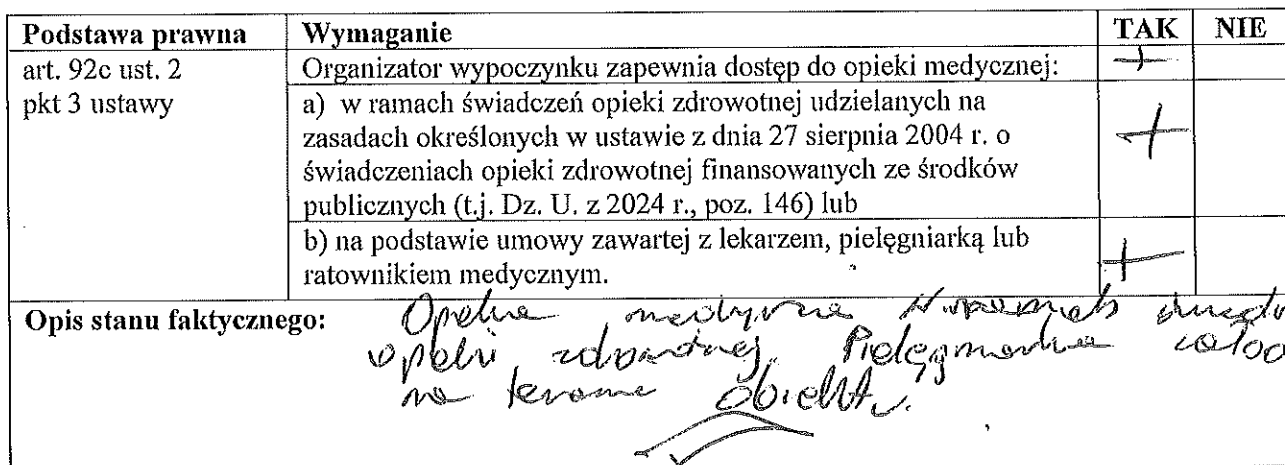 Podstawa prawna Wymaganie TAK NIE
art. 92c ust. 2 Organizator wypoczynku zapewnia dostęp do opieki medycznej: +
pkt 3 ustawy a) w ramach świadczeń opieki zdrowotnej udzielanych na
zasadach określonych w ustawie z dnia 27 sierpnia 2004 r. o +
świadczeniach opieki zdrowotnej finansowanych ze środków
publicznych (t.j. Dz. U. z 2024 r., poz. 146) lub
b) na podstawie umowy zawartej z lekarzem, pielęgniarką lub +
ratownikiem medycznym.
Opis stanu faktycznego: Opieka medyczna w ramach
opieki zdrowotnej. Pielęgniarka
na terenie obiektu.